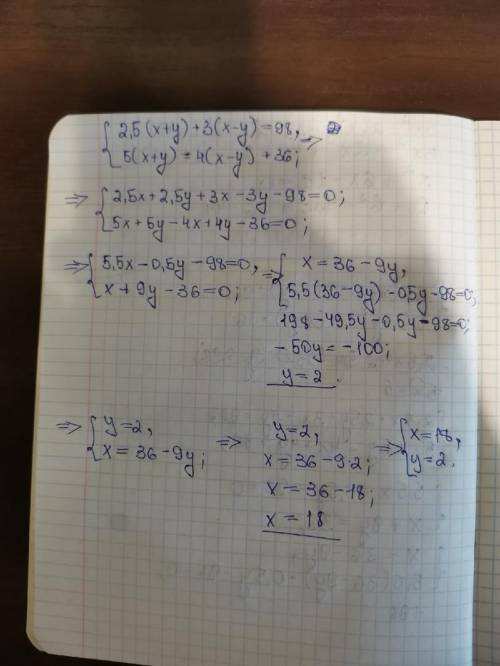 { 2,5(x+y)+3(x-y)=98, =>
5(x+y)=4(x-y)+36;
=> { 2,5x+2,5y+3x-3y-98=0;
5x+5y-4x+4y-36=0;
=> { 5,5x-0,5y-98=0,
x+9y-36=0;
=> { x=36-9y,
5,5(36-9y)-0,5y-98=0;
198-49,5y-0,5y-98=0;
-50y=-100;
y=2.
=> { y=2,
x=36-9y;
=> y=2,
x=36-9·2;
x=36-18;
x=18
=> { x=18,
y=2.